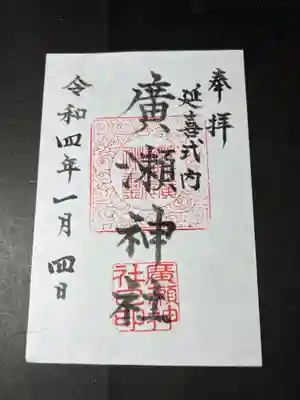 奉拝
延喜式内
廣瀬神社
令和四年一月四日
廣瀬神
社